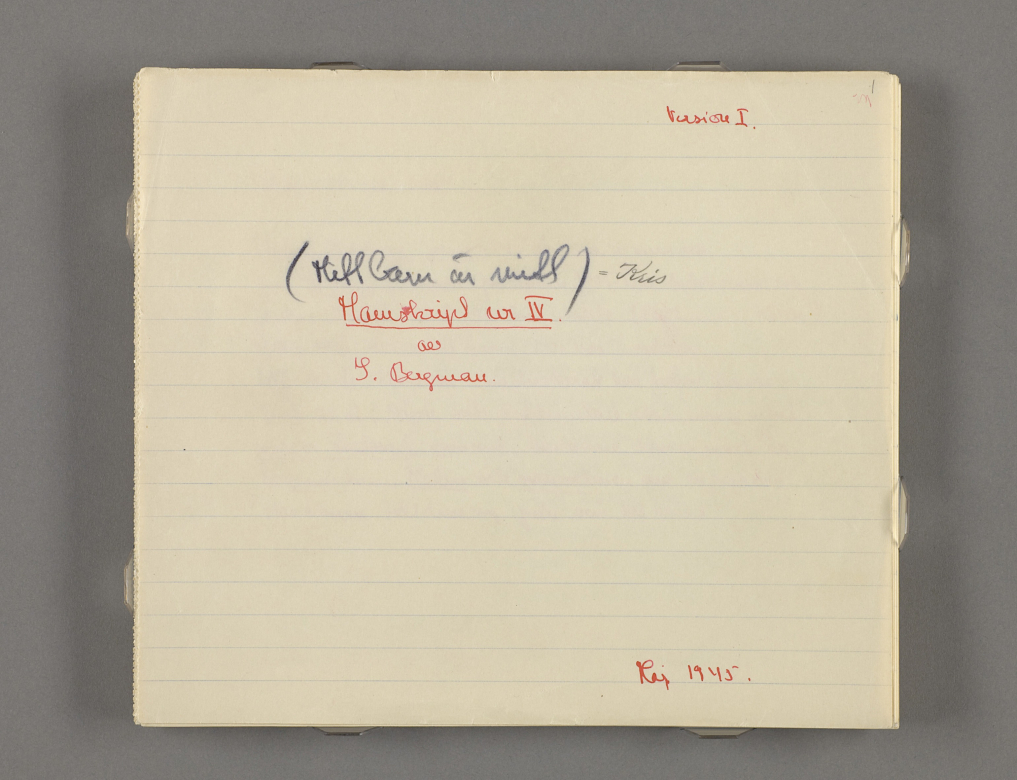 1
Version I.
(Mitt barn är mitt) = Kris
Manuskript nr IV.
av
I. Bergman.
Maj 1945.